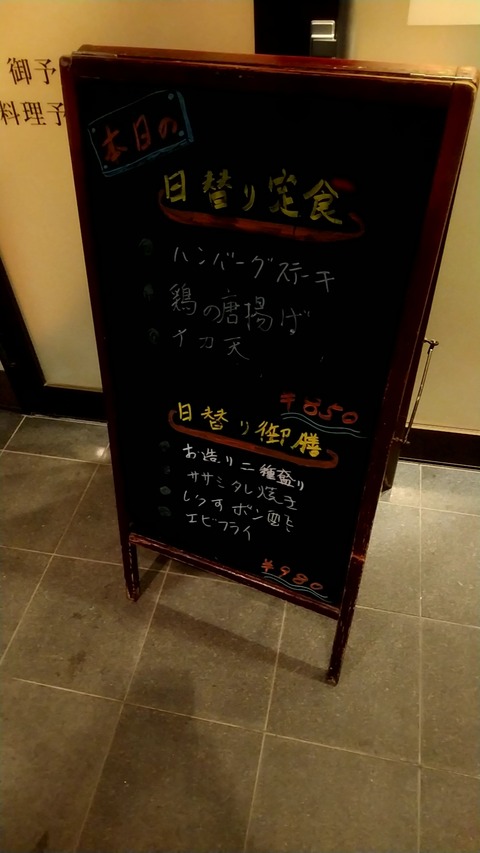 御予
料理予
本日の
日替り定食
ハンバーグステーキ
鶏の唐揚げ
イカ天
¥850
日替り御膳
お造り二種盛り
ササミタレ焼き
しらすポン酢
エビフライ
¥980